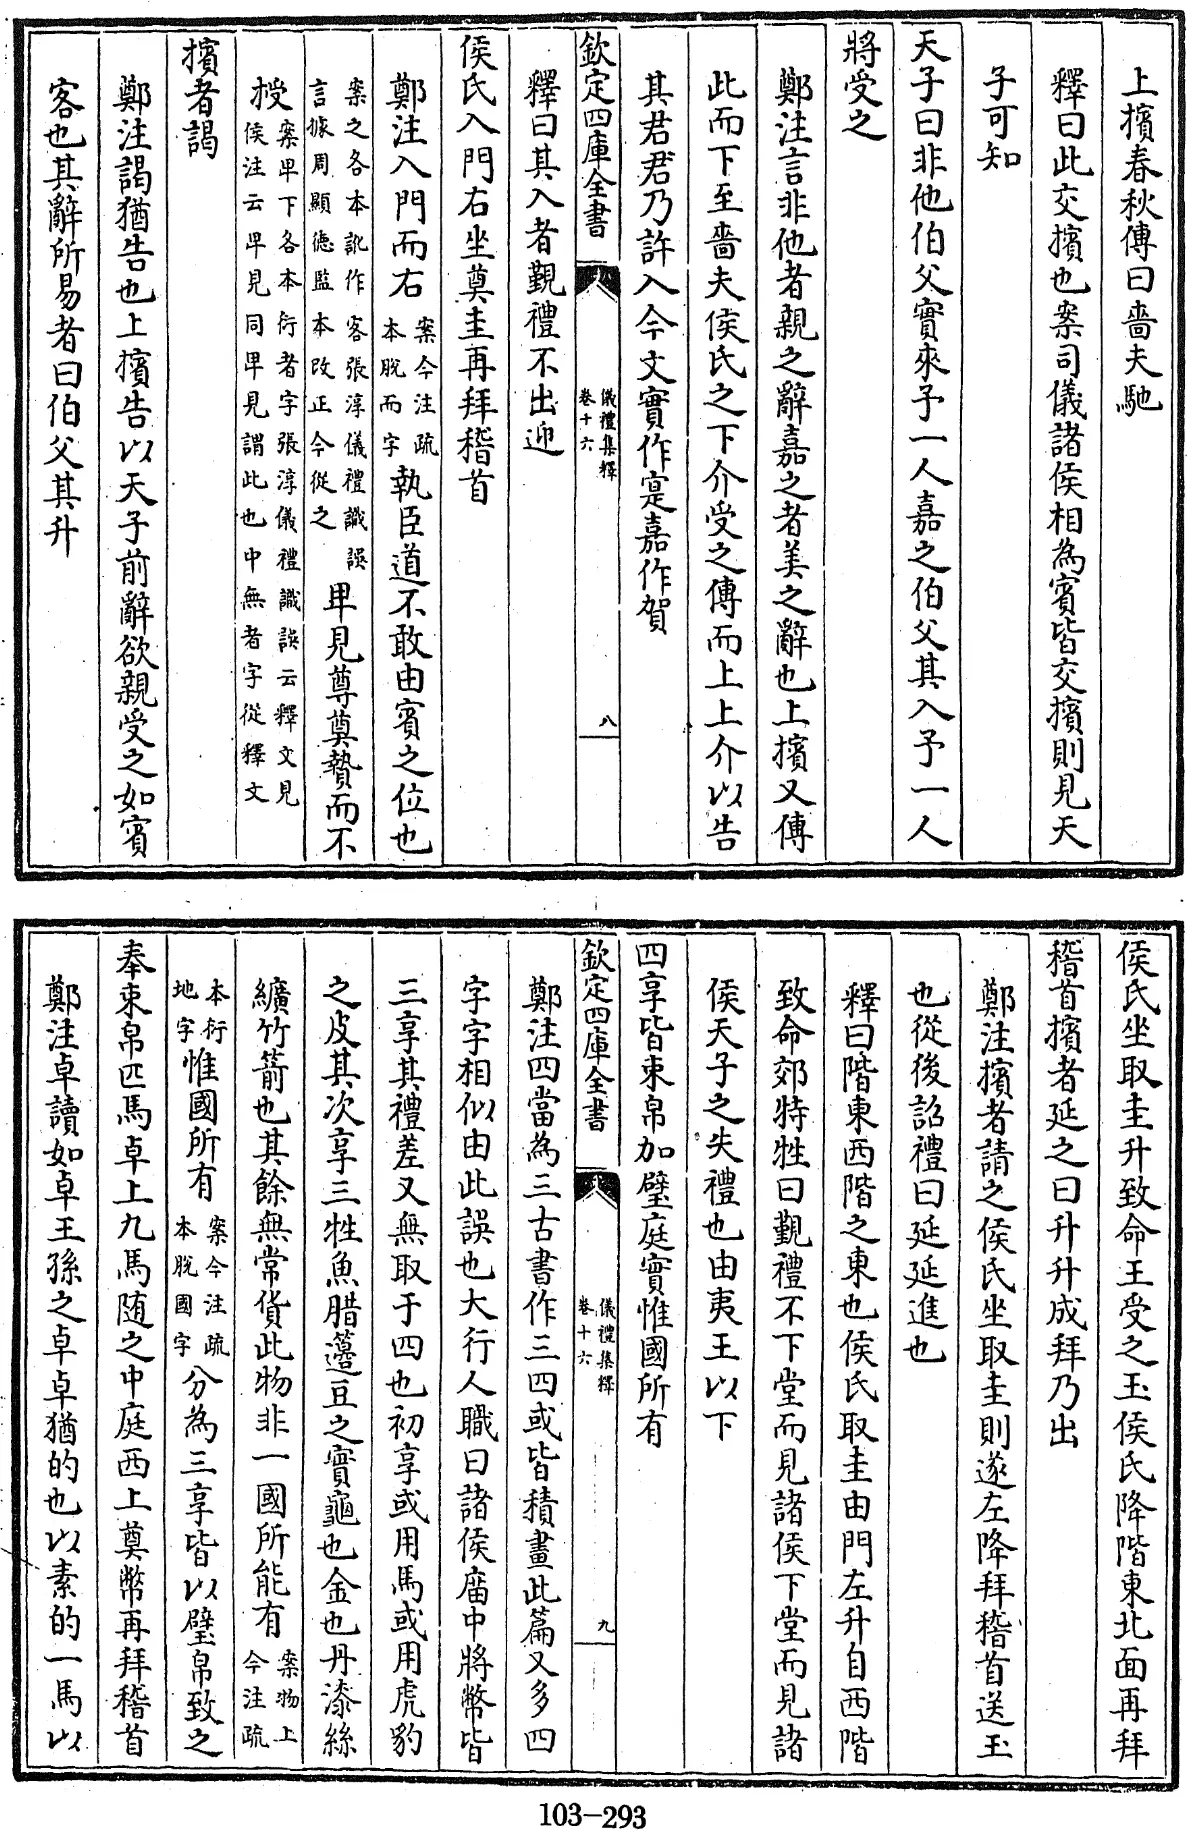 上擯春秋傳曰嗇夫馳
釋曰此交擯也案司儀諸侯相為賓皆交擯則見天
子可知
天子曰非他伯父實來予一人嘉之伯父其入予一人
將受之
鄭注言非他者親之辭嘉之者美之辭也上擯又傳
此而下至嗇夫侯氏之下介受之傳而上上介以告
其君君乃許入今文實作寔嘉作賀
欽定四庫全書
儀禮集釋
卷十六
八
釋曰其入者覲禮不出迎
侯氏入門右坐奠圭再拜稽首
鄭注入門而右案今注疏本脫而字執臣道不敢由賓之位也
案之各本訛作客張淳儀禮識誤言據周顯德監本改正今從之卑見尊奠贄而不
授案卑下各本衍者字張淳儀禮識誤云釋文見侯注云卑見同卑見謂此也中無者字從釋文
擯者謁
鄭注謁猶告也上擯告以天子前辭欲親受之如賓
客也其辭所易者曰伯父其升
侯氏坐取圭升致命王受之玉侯氏降階東北面再拜
稽首擯者延之曰升升成拜乃出
鄭注擯者請之侯氏坐取圭則遂左降拜稽首送玉
也從後詔禮曰延延進也
釋曰階東西階之東也侯氏取圭由門左升自西階
致命郊特牲曰覲禮不下堂而見諸侯下堂而見諸
侯天子之失禮也由夷王以下
四享皆束帛加璧庭實惟國所有
欽定四庫全書
儀禮集釋
卷十六
九
鄭注四當為三古書作三四或皆積畫此篇又多四
字字相似由此誤也大行人職曰諸侯廟中將幣皆
三享其禮差又無取于四也初享或用馬或用虎豹
之皮其次享三牲魚腊籩豆之實龜也金也丹漆絲
纊竹箭也其餘無常貨此物非一國所能有案物上今注疏
本衍地字惟國所有案今注疏本脫國字分為三享皆以璧帛致之
奉束帛匹馬卓上九馬随之中庭西上奠幣再拜稽首
鄭注卓讀如卓王孫之卓卓猶的也以素的一馬以
103-293